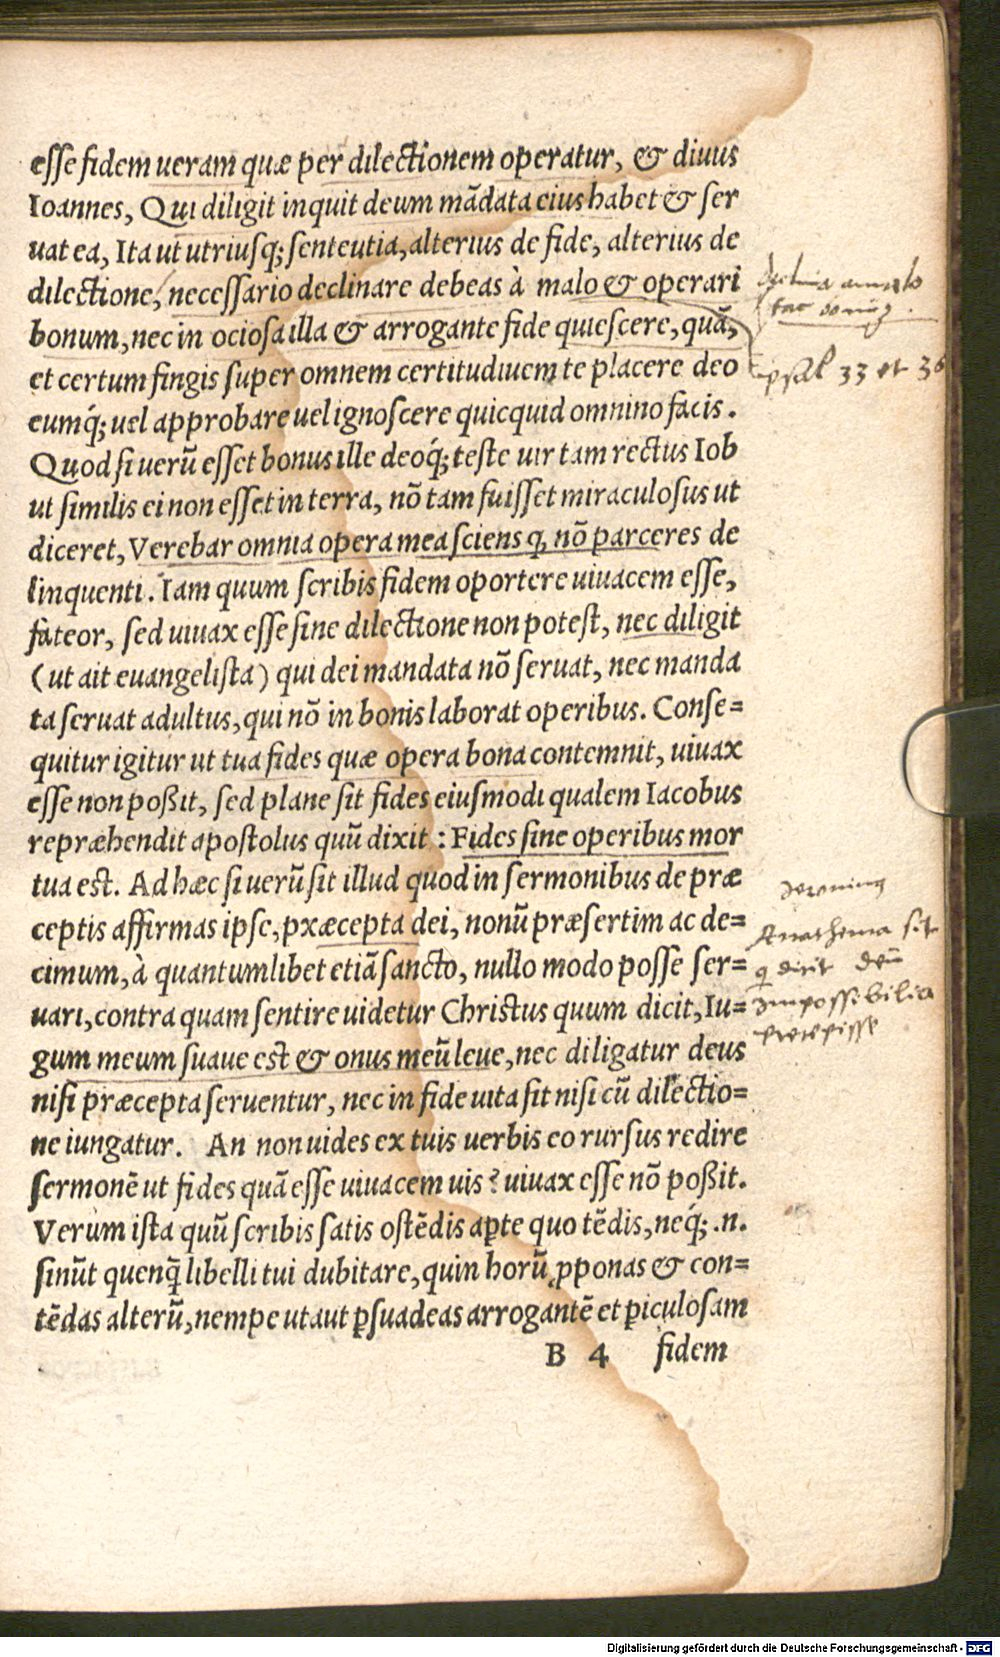 esse fidem ueram quæ per dilectionem operatur, & diuus
Ioannes, Qui diligit inquit deum mãdata eius habet & ser
uat ea, Ita ut utriusq; senteutia, alterius de fide, alterius de
dilectione, necessario declinare debeas à malo & operari
bonum, nec in ociosa illa & arrogante fide quiescere, quã,
et certum fingis super omnem certitudiuem te placere deo
eumq́; uel approbare uel ignoscere quicquid omnino facis.
Quod si uerũ esset bonus ille deoq́; teste uir tam rectus Iob
ut similis ei non esset in terra, nõ tam fuisset miraculosus ut
diceret, Verebar omnia opera mea sciens q, nõ parceres de
linquenti. Iam quum scribis fidem oportere uiuacem esse,
fateor, sed uiuax esse sine dilectione non potest, nec diligit
(ut ait euangelista) qui dei mandata nõ seruat, nec manda
ta seruat adultus, qui nõ in bonis laborat operibus. Conse=
quitur igitur ut tua fides quæ opera bona contemnit, uiuax
esse non poßit, sed plane sit fides eiusmodi qualem Iacobus
repræhendit apostolus quũ dixit : Fides sine operibus mor
tua est. Ad hæc si uerũ sit illud quod in sermonibus de præ
ceptis affirmas ipse, præcepta dei, nonũ præsertim ac de=
cimum, à quantumlibet etiã sancto, nullo modo posse ser=
uari, contra quam sentire uidetur Christus quum dicit, Iu=
gum meum suaue est & onus meũ leue, nec diligatur deus
nisi præcepta seruentur, nec in fide uita sit nisi cũ dilectio=
ne iungatur. An non uides ex tuis uerbis eo rursus redire
sermonẽ ut fides quã esse uiuacem uis? uiuax esse nõ poßit.
Verum ista quũ scribis satis ostẽdis aꝑte quo tẽdis, neq́; .n.
sinũt quenq̃ libelli tui dubitare, quin horũ ꝓponas & con=
tẽdas alterũ, nempe ut aut ꝑsuadeas arrogantẽ et ꝑiculosam
B 4 fidem
a malo
psal 33 et 36
Anathema sit
q dixit deũ
Impossibilia
Digitalisierung gefördert durch die Deutsche Forschungsgemeinschaft - DFG